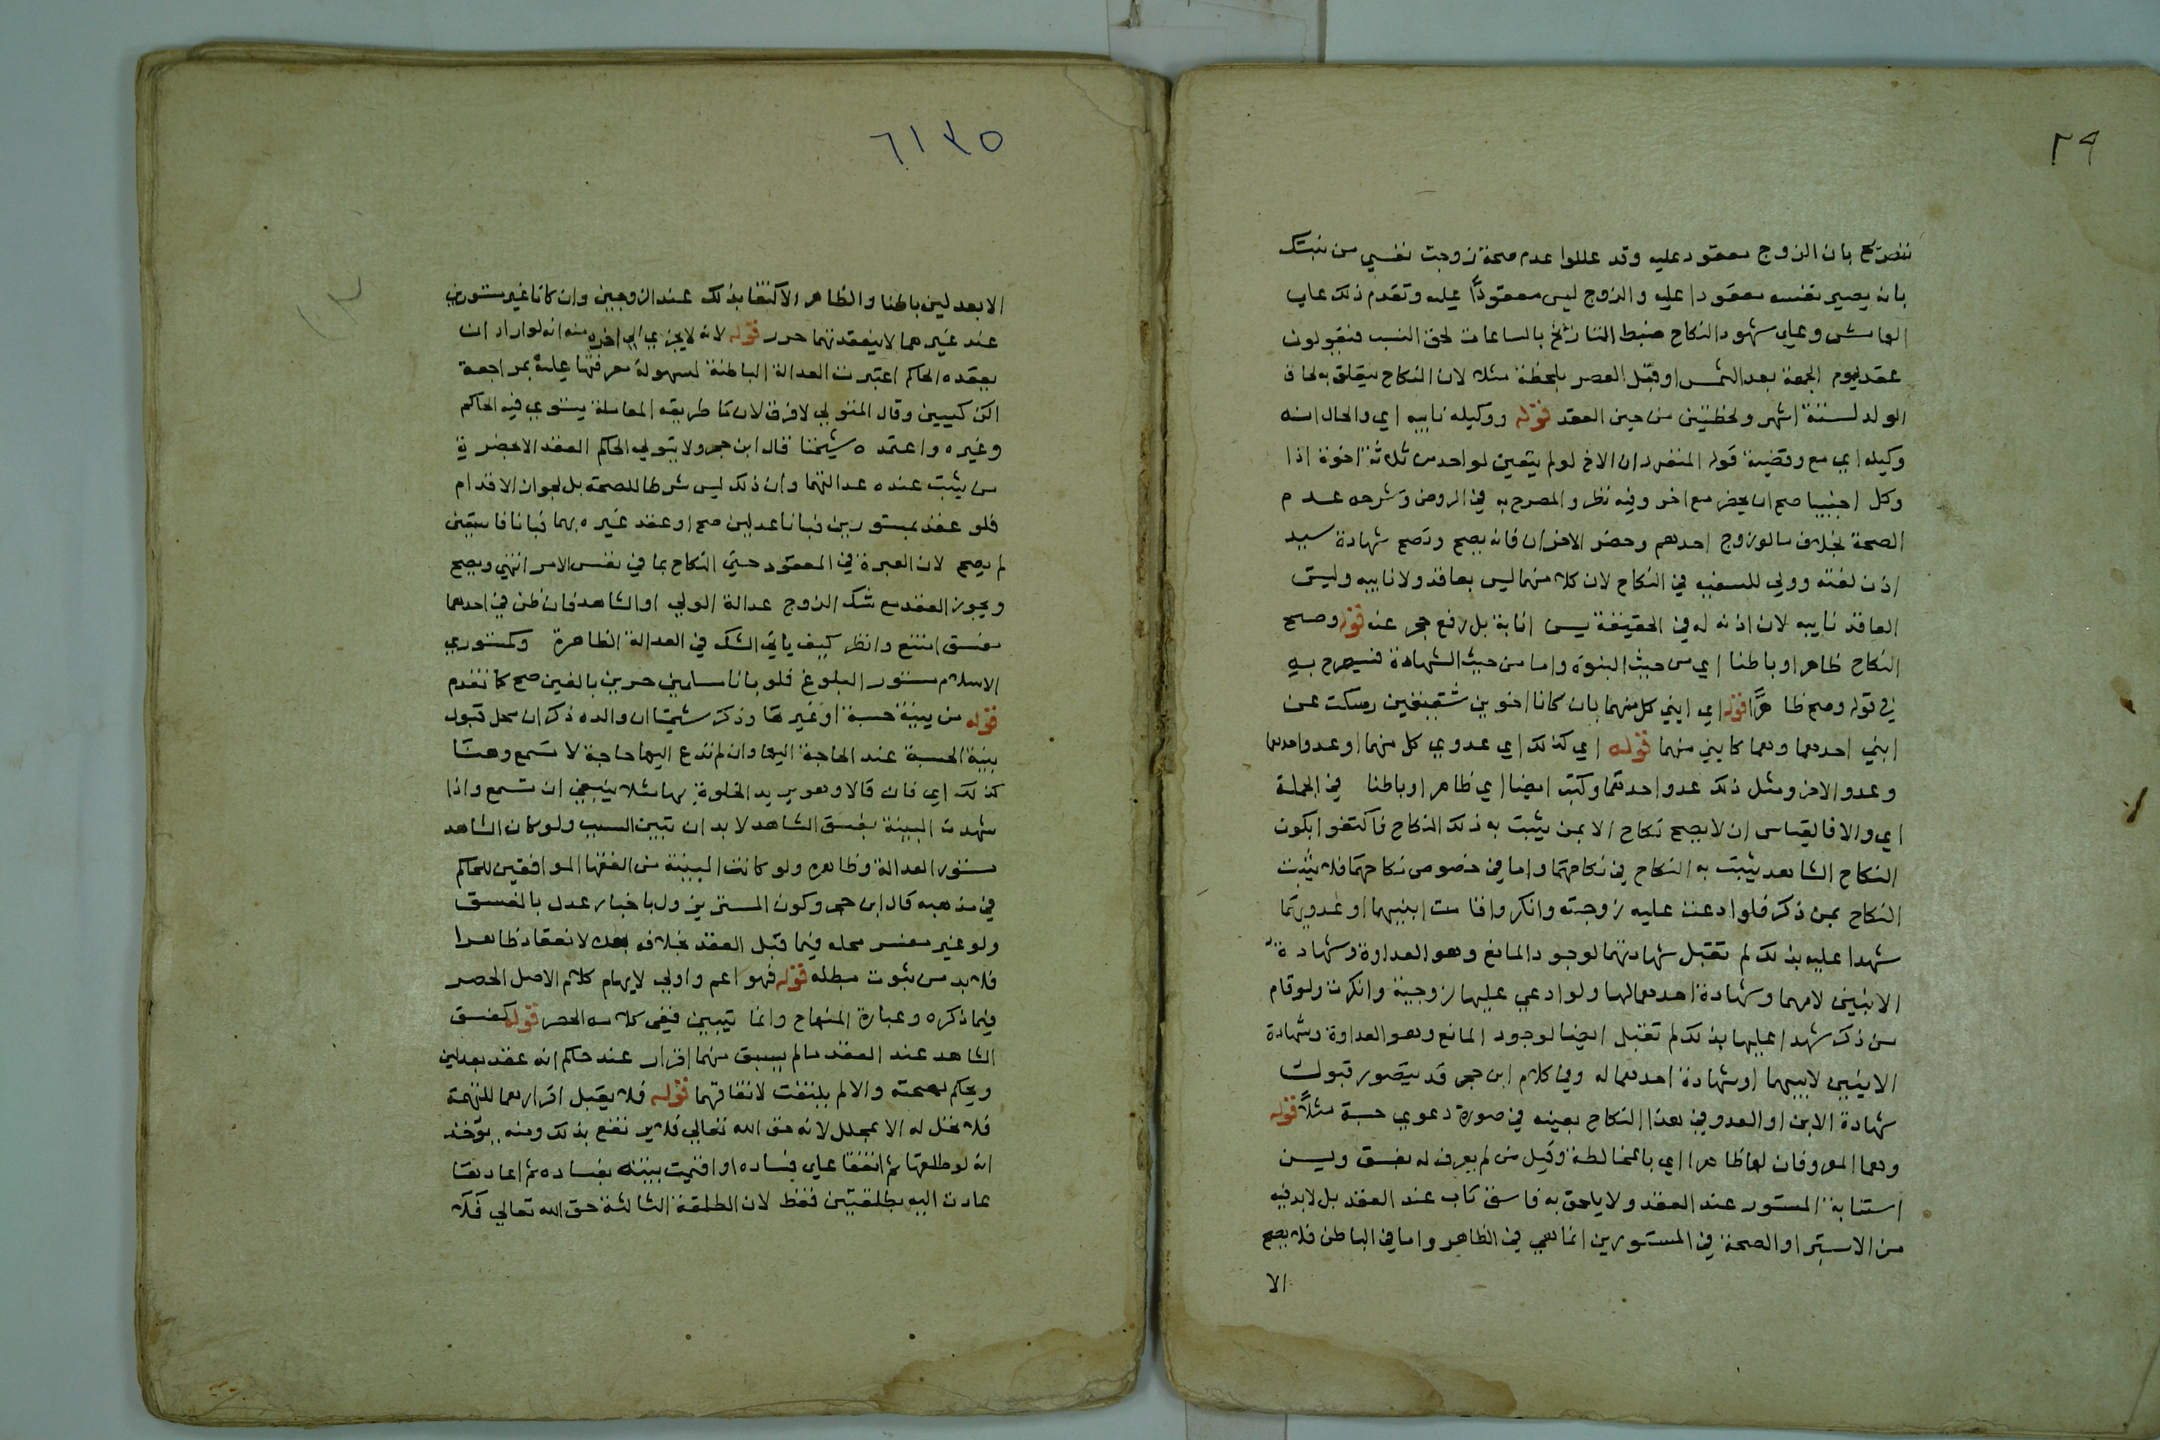 ٣٩
تنصرح بان الزوج معقود عليه وقد عللوا عدم صحة زوجت نفسي من بنتك
بانه يصير نفسه معقودا عليه والزوج ليس معقودًا عليه وتقدم ذلك علي
الهامش وعلي شهود النكاح ضبط التاريخ بالساعات لحق النسب فيقولون
عقد ليوم الجمعة بعد الشمس او قبل العصر بلحظة مثلا لان النكاح يتعلق به لحاق
الولد لستة اشهر ولحظتين من حين العقد قوله ووكيله نايبه اي والحال انه
وكيله اي مع وقضية قوله المنفرد ان الاخ لو لم يتعين لواحد من ثلاثة اخوة اذا
وكل اجنبيا صح ان يحضر مع اخر وفيه نظر والمصرح به في الروض وشرحه عدم
الصحة بخلاف ما لو زوج احدهم وحضر الاخران فانه يصح وتصح شهادة سيد
اذن لقنه وولي للسفيه في النكاح لان كلا منهما ليس بعاقد ولا نايبه وليس
العاقد نايبه لان اذنه له في الحقيقة ليس انابة بل رفع حجر عنه قوله وصح
النكاح ظاهرا وباطنا اي من حيث البنوة واما من حيث الشهادة فسيصرح به
في قوله وصح ظاهرًا قوله اي ابني كل منهما بان كانا اخوين شقيقين وسكت عن
ابني احدهما وهما كابني منهما قوله اي كذلك اي عدوي كل منهما او عدو احدهما
وعدو الاخر ومثل ذلك عدو احدهما وكتب ايضا اي ظاهرا وباطنا في الجملة
اي والا فالقياس ان لا يصح نكاح الا بمن يثبت به ذلك النكاح فاكتفوا بكون
النكاح الشاهد يثبت به النكاح في نكاحهما واما في خصوص نكاحهما فلا يثبت
النكاح بمن ذكر فلو ادعت عليه زوجته وانكر واقامت ابنيهما او عدويهما
شهدا عليه بذلك لم تقبل شهادتهما لوجود المانع وهو العداوة وشهادة
الابنين لامهما وشهادة احدهما لها ولو ادعي عليها زوجية وانكرت ولو قام
من ذكر شهدا عليها بذلك لم تقبل ايضا لوجود المانع وهو العداوة وشهادة
الابنين لابيهما او شهادة احدهما له وفي كلام ابن حجر قد يتصور قبول
شهادة الابن او العدو في هذا النكاح بعينه في صورة دعوي حسبة مثلاً قوله
وهما المعروفان لها ظاهرا اي بالمخالطة وقيل من لم يعرف له مفسق وليس
استتابة المستور عند العقد ولا يلحق به فاسق تاب عند العقد بل لابد فيه
من الاستبرا والصحة في المستورين انما هي في الظاهر واما في الباطن فلا يصح
الا
٦١٣٥
الا بعدلين باطنا والظاهر الاكتفا بذلك عند الزوجين وان كانا غير مستورين
عند غيرهما لا ينعقد بهما حرر قوله لانه لا يجري الي اخره منه انه لو اراد ان
يعقده الحاكم اعتبرت العدالة الباطنة لسهولة معرفتها عليهٔ بمراجعة
المزكيين وقال المتولي لا فرق لان ما طريقه المعاملة يستوي فيه الحاكم
وغيره واعتمده شيخنا قال ابن حجر ولا يتولي الحاكم العقد الا بحضرة
من يثبت عنده عدالتهما وان ذلك ليس شرطا للصحة بل لجواز الاقدام
فلو عقد بمستورين فبانا عدلين صح او عقد غيره بهما فبانا فاسقين
لم يصح لان العبرة في العقود حتي النكاح بما في نفس الامر انتهي ويصح
ويجوز العقد مع شك الزوج عدالة الولي او الشاهد فان ظن في احدهما
مفسق امتنع وانظر كيف ياتي الشك في العدالة الظاهرة وكمستوري
الاسلام مستور البلوغ فلو بانا مسلمين حرين بالغين صح كما تقدم
قوله من بينة حسبة او غيرها وذكر شيخنا ان والده ذكر ان محل قبول
بينة الحسبة عند الحاجة اليها وان لم تدع اليها حاجة لا تسمع وهنا
كذلك اي فان قالا وهو يريد الخلوة بها مثلا ينبغي ان تسمع واذا
شهدت البينة بفسق الشاهد لا بد ان تبين السبب ولو كان الشاهد
مستور العدالة وظاهره ولو كانت البينة من الفقها الموافقين للحاكم
في مذهبه قال ابن حجر وكون الستر يزول باخبار عدل بالفسق
ولو غير مفسر محله فيما قبل العقد بخلافه بعده لانعقاده ظاهرا
فلا بد من ثبوت مبطله قوله فهو اعم واولي لايهام كلام الاصل الحصر
فيما ذكره وعبارة المنهاج وانما يتبين ففي كلامه الحصر قوله كفسق
الشاهد عند العقد ما لم يسبق منهما اقرار عند حاكم انه عقد بعدلين
ويحكم بصحته والا لم يلتفت لاتفاقهما قوله فلا يقبل اقرارهما للتهمة
فلا تحل له الا بمحلل لانه حق الله تعالي فلا يرتفع بذلك ومنه يؤخذ
انه لو طلقها ثم اتفقا علي فساده او اقيمت بينة بفساده ثم اعادها
عادت اليه بطلقتين فقط لان الطلقة الثالثة حق الله تعالي فلا